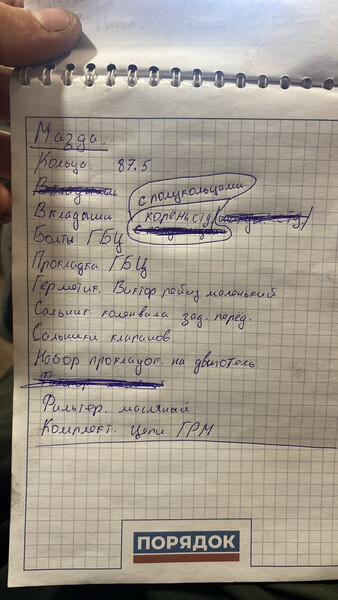 Мазда.
Кольца 87.5
с полукольцами
Вкладыши корень STD
Болты ГБЦ
Прокладка ГБЦ
Герметик. Виктор рейнз маленький
Сальник коленвала зад. перед.
Сальники клапанов.
Набор прокладок на двигатель
Фильтр. масляный
Комплект. Цепи ГРМ
ПОРЯДОК